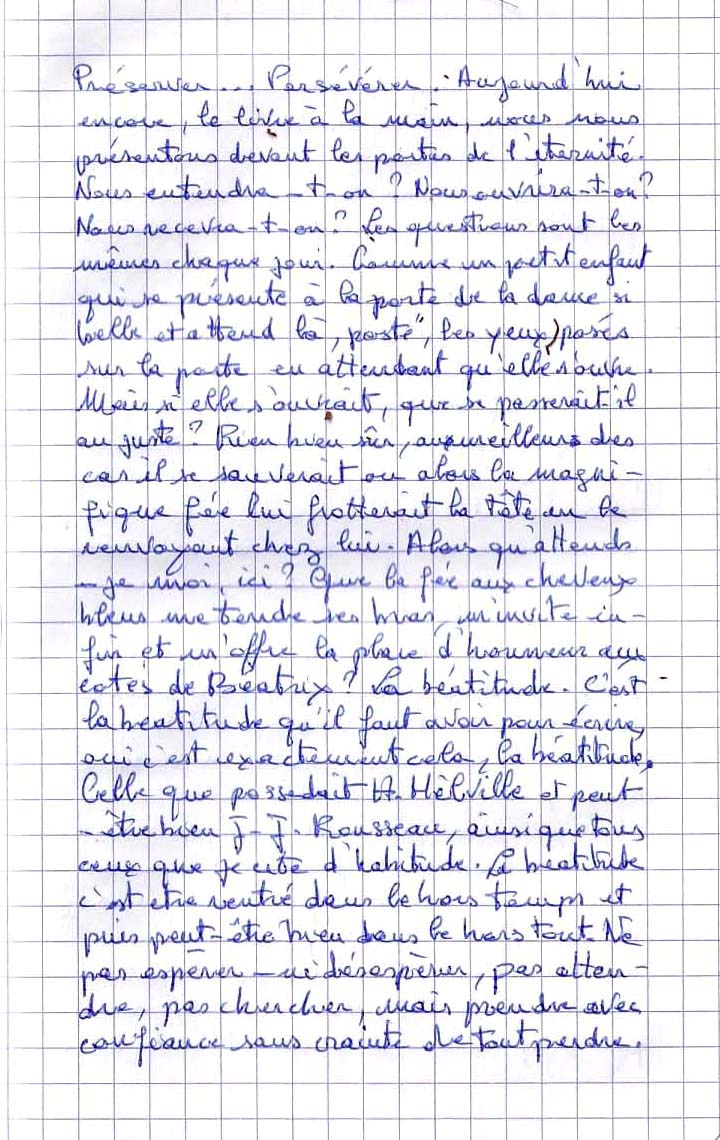 Préserver... Persévérer. Aujourd'hui
encore, le livre à la main, nous nous
présentons devant les portes de l'éternité.
Nous entendra-t-on ? Nous ouvrira-t-on ?
Nous recevra-t-on ? Les questions sont les
mêmes chaque jour. Comme un petit enfant
qui se présente à la porte de la dame si
belle et attend là, posté, les yeux posés
sur la porte en attendant qu'elle s'ouvre.
Mais si elle s'ouvrait, que se passerait-il
au juste ? Rien bien sûr, au meilleurs des
cas il se sauverait ou alors la magni-
fique fée lui frotterait la tête en le
renvoyant chez lui. Alors qu'attends
-je moi, ici ? Que la fée aux cheveux
bleus me tende ses bras, m'invite en-
fin et m'offre la place d'honneur aux
cotés de Béatrix ? La béatitude. C'est
la béatitude qu'il faut avoir pour écrire,
oui c'est exactement cela, la béatitude.
Celle que possédait H. Melville et peut
-être bien J-J. Rousseau, ainsi que tous
ceux que je cite d'habitude. La béatitude
c'est etre rentré dans le hors temps et
puis peut-être bien dans le hors tout. Ne
pas espérer - ni désespérer, pas atten-
dre, pas chercher, mais prendre avec
confiance sans crainte de tout perdre.